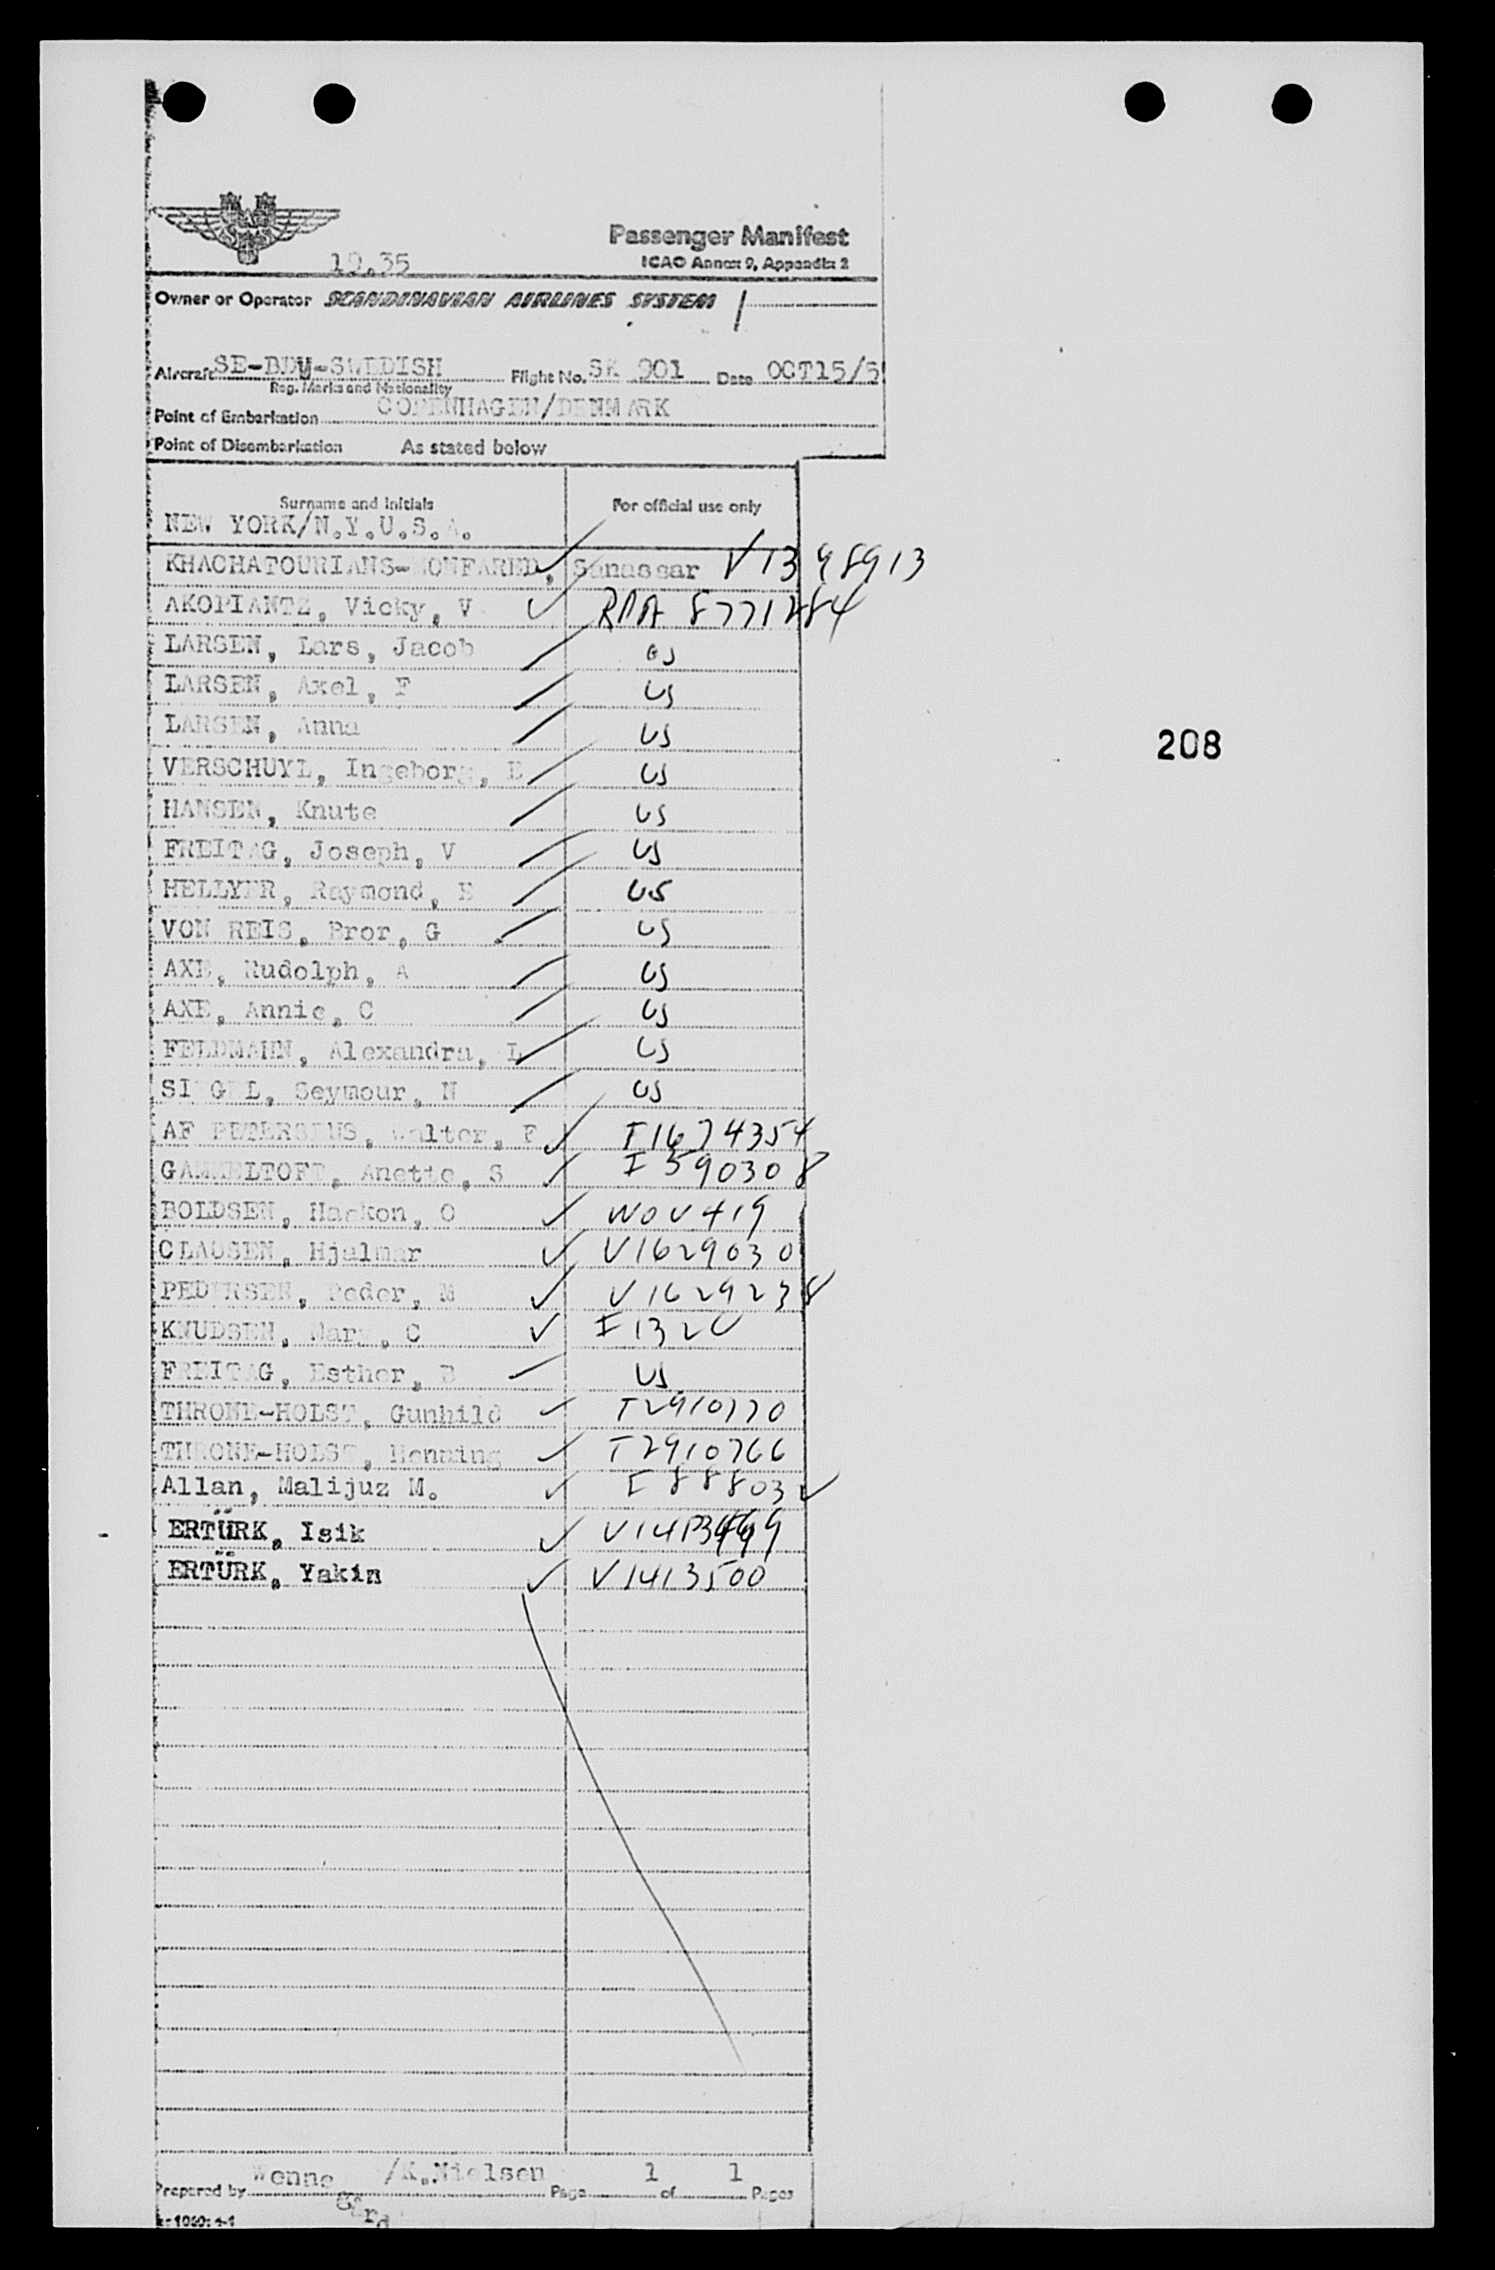 Passenger Manifest
ICAO Annex 9, Appendix 2
19.35
Owner or Operator SCANDINAVIAN AIRLINES SYSTEM
Aircraft SE-BDU-SWEDISH Flight No. SK 901 Date OCT15/5
Reg. Marks and Nationality
Point of Embarkation COPENHAGEN/DENMARK
Point of Disembarkation As stated below
Surname and Initials For official use only
NEW YORK/N.Y.U.S.A.
KHACHATOURIANS-MONFARED, Sanassar V1398913
AKOPIANTZ, Vicky, V 8771284
LARSEN, Lars, Jacob US
LARSEN, Axel, F US
LARSEN, Anna US
VERSCHUYL, Ingeborg, E US
HANSEN, Knute US
FREITAG, Joseph, V US
HELLYER, Raymond, E US
VON REIS, Bror, G US
AXE, Rudolph, A US
AXE, Annie, C US
FELDMAHN, Alexandra, L US
SIEGEL, Seymour, N US
AF PETERSENS, Walter, F I1674354
GAMMELTOFT, Anette, S I590308
BOLDSEN, Haakon, O WOV419
CLAUSEN, Hjalmar V1629030
PEDERSEN, Peder, M V1629238
KNUDSEN, Mary, C
FREITAG, Esther, B US
THRONE-HOLST, Gunhild T2910770
THRONE-HOLST, Henning T2910766
Allan, Malijuz M. I88803
ERTÜRK, Isik
ERTÜRK, Yakin V1413500
208
Prepared by Wennegård/K.Nielsen Page 1 of 1 Pages